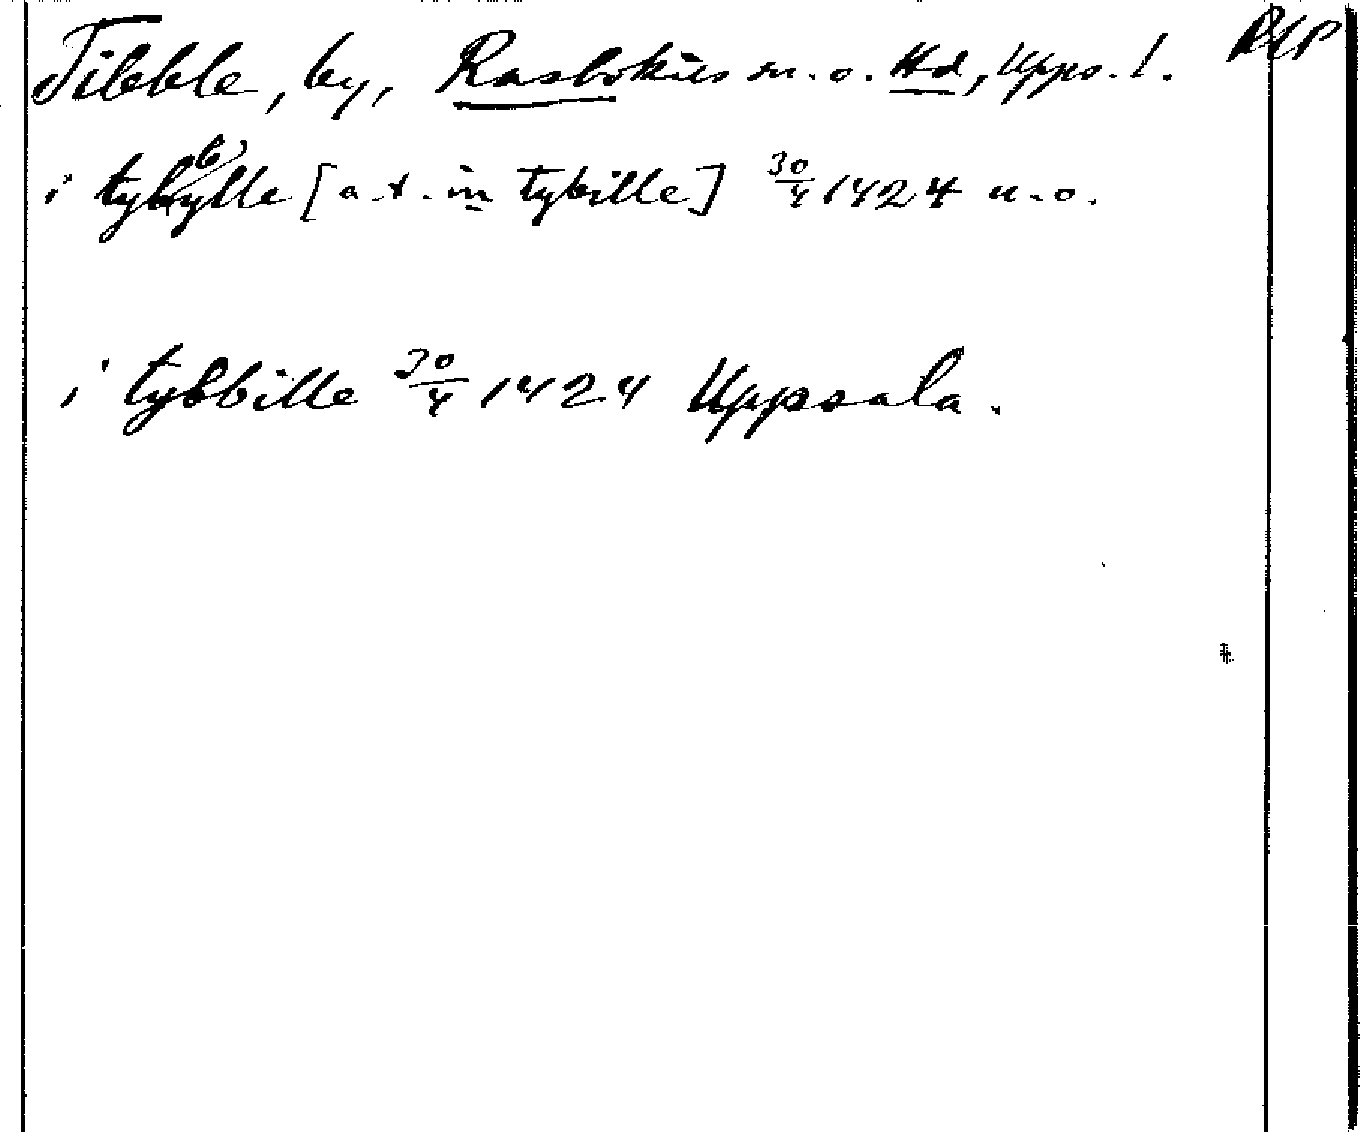 Tibble, by, Rasbokils sn. o. Hd, Upps. l. RAP
i tybylle [a. t. in tybille] 30/4 1424 u. o.
i tybbille 30/4 1424 Uppsala.